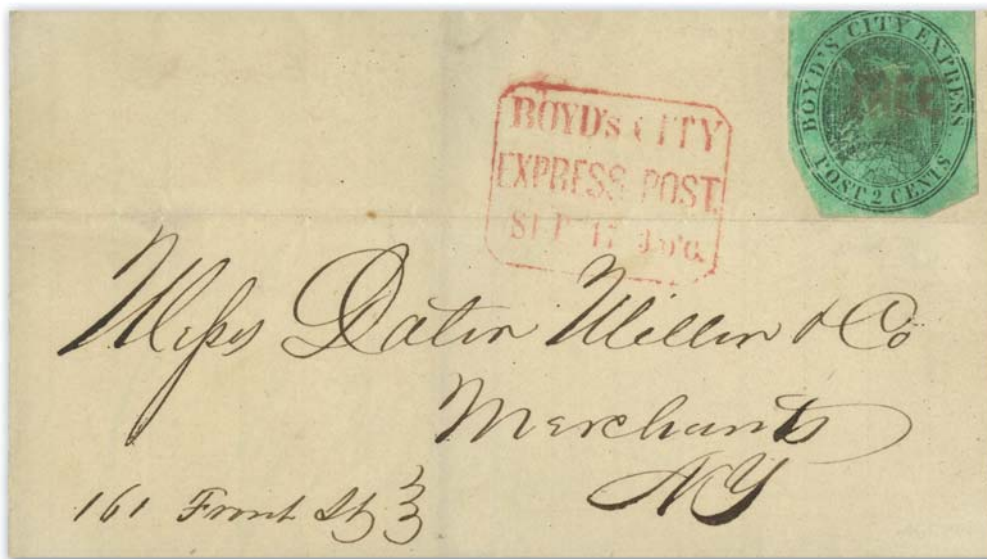 BOYD'S CITY EXPRESS.
POST 2 CENTS
FREE
BOYD's CITY
EXPRESS POST
SEP 17
Mess Dater Miller & Co
Merchants
NY
161 Front St